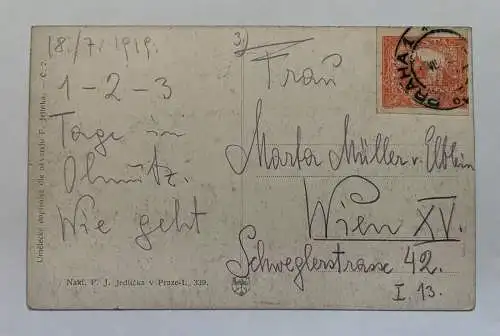 18./7. 1919.
1 - 2 - 3
Tage in
Olmütz.
Wie geht
3)
Frau
Marta Müller v. Elblein
Wien XV.
Schweglerstrasse 42.
I 13.
PRAHA 1
Umělecké dopisnice dle akvarelu F. Jedličky — Č. 7.
Nakl. F. J. Jedlička v Praze-I., 339.